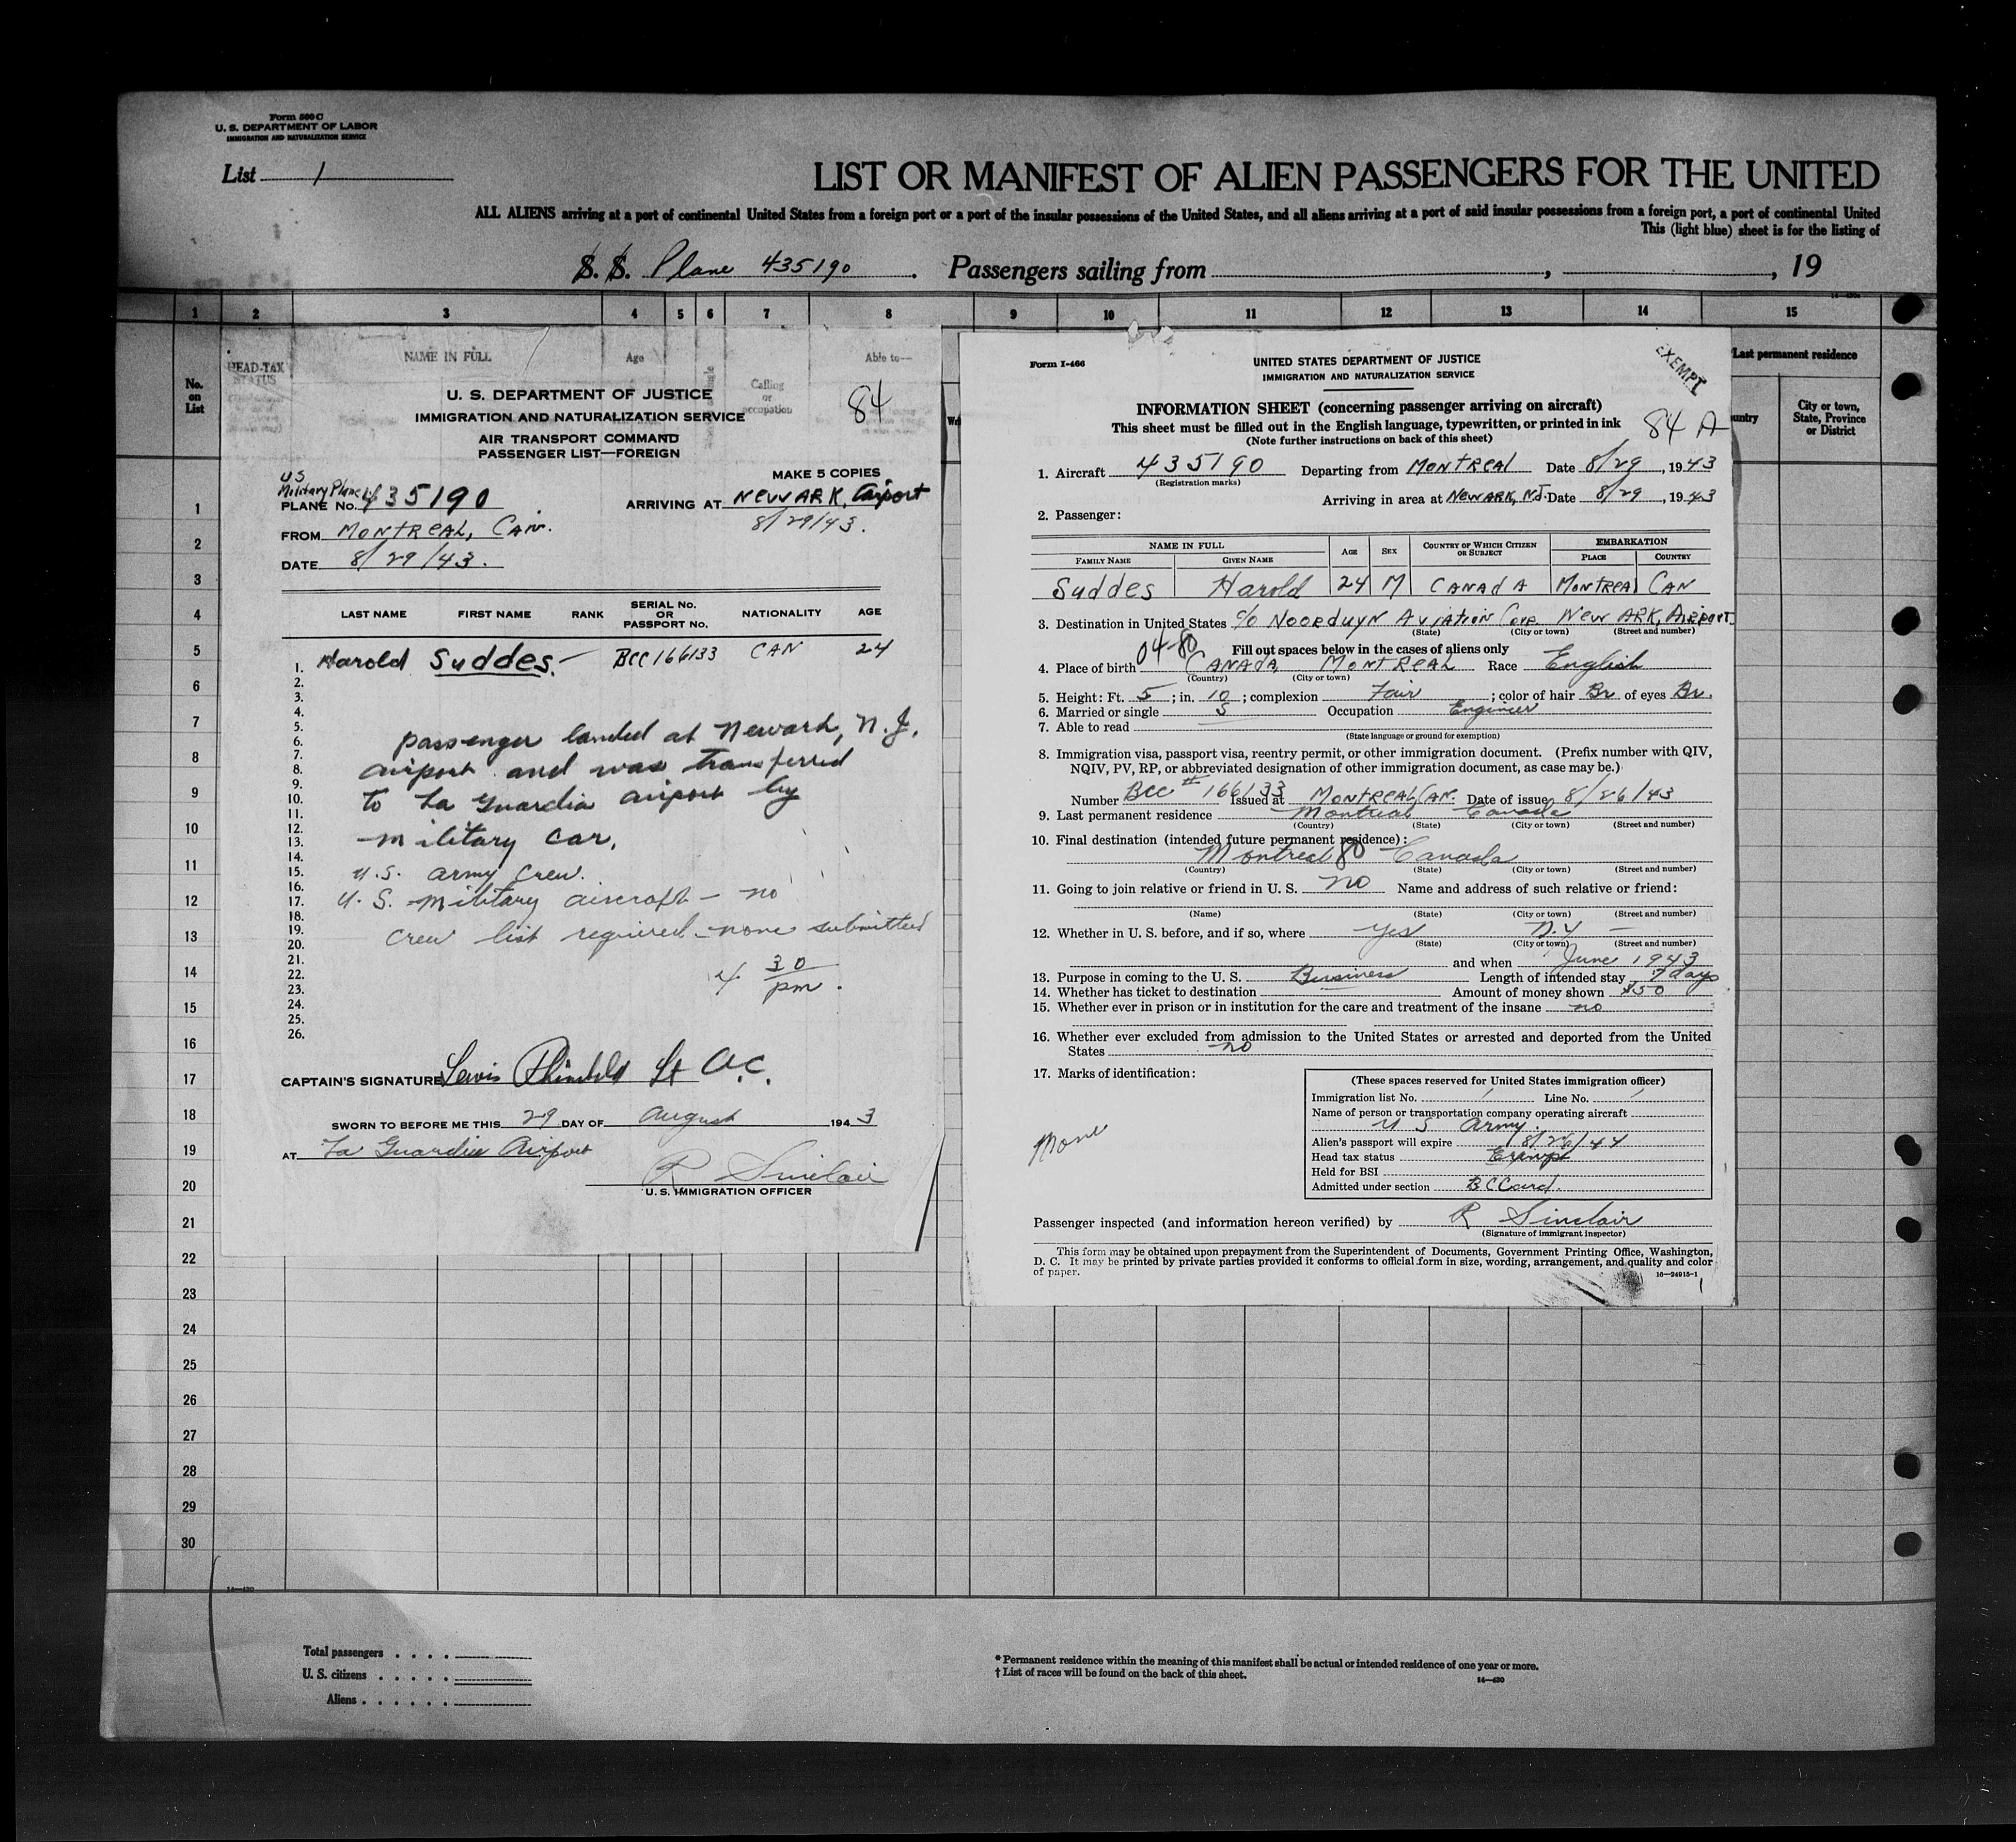 Form 500 C
U. S. DEPARTMENT OF LABOR
IMMIGRATION AND NATURALIZATION SERVICE
List 1
LIST OR MANIFEST OF ALIEN PASSENGERS FOR THE UNITED
ALL ALIENS arriving at a port of continental United States from a foreign port or a port of the insular possessions of the United States, and all aliens arriving at a port of said insular possessions from a foreign port, a port of continental United
This (light blue) sheet is for the listing of
S. S. Plane 435190 . Passengers sailing from , , 19
1 2 3 4 5 6 7 8 9 10 11 12 13 14 15
No. on List
HEAD-TAX STATUS
NAME IN FULL
Age
Calling or occupation
Able to—
Last permanent residence
City or town, State, Province or District
U. S. DEPARTMENT OF JUSTICE
IMMIGRATION AND NATURALIZATION SERVICE
AIR TRANSPORT COMMAND
PASSENGER LIST—FOREIGN
84
MAKE 5 COPIES
US
Military Plane
PLANE No. 435190
ARRIVING AT NEWARK, Airport
8/29/43.
FROM MONTREAL, CAN.
DATE 8/29/43.
LAST NAME FIRST NAME RANK SERIAL No. OR PASSPORT No. NATIONALITY AGE
1. Harold Suddes.— BCC166133 CAN 24
2.
3.
4.
5.
6.
7.
8.
9.
10.
11.
12.
13.
14.
15.
16.
17.
18.
19.
20.
21.
22.
23.
24.
25.
26.
passenger landed at Newark, N.J.
airport and was transferred
to La Guardia airport by
military car.
U.S. army crew.
U.S. military aircraft — no
crew list required—none submitted
4 30 pm.
CAPTAIN'S SIGNATURE Lewis Lt A.C.
SWORN TO BEFORE ME THIS 29 DAY OF August 1943
AT La Guardia Airport
R Sinclair
U. S. IMMIGRATION OFFICER
Form I-466
UNITED STATES DEPARTMENT OF JUSTICE
IMMIGRATION AND NATURALIZATION SERVICE
EXEMPT
INFORMATION SHEET (concerning passenger arriving on aircraft)
This sheet must be filled out in the English language, typewritten, or printed in ink
(Note further instructions on back of this sheet)
84 A
1. Aircraft 435190 Departing from MONTREAL Date 8/29, 1943
(Registration marks)
Arriving in area at NEWARK, NJ. Date 8/29, 1943
2. Passenger:
NAME IN FULL AGE SEX COUNTRY OF WHICH CITIZEN OR SUBJECT EMBARKATION
FAMILY NAME GIVEN NAME PLACE COUNTRY
Suddes Harold 24 M CANADA MONTREAL CAN
3. Destination in United States c/o NOORDUYN AVIATION Corp. NEWARK, AIRPORT
(State) (City or town) (Street and number)
04-80
Fill out spaces below in the cases of aliens only
4. Place of birth CANADA MONTREAL Race English
(Country) (City or town)
5. Height: Ft. 5; in. 10; complexion Fair; color of hair Br of eyes Br.
6. Married or single S Occupation Engineer
7. Able to read
(State language or ground for exemption)
8. Immigration visa, passport visa, reentry permit, or other immigration document. (Prefix number with QIV,
NQIV, PV, RP, or abbreviated designation of other immigration document, as case may be.)
Number BCC # 166133 Issued at MONTREAL CAN. Date of issue 8/26/43
9. Last permanent residence Montreal Canada
(Country) (State) (City or town) (Street and number)
10. Final destination (intended future permanent residence):
Montreal 80 Canada
(Country) (State) (City or town) (Street and number)
11. Going to join relative or friend in U. S. no Name and address of such relative or friend:
(Name) (State) (City or town) (Street and number)
12. Whether in U. S. before, and if so, where yes N.Y —
(State) (City or town) (Street and number)
and when June 1943
13. Purpose in coming to the U. S. Business Length of intended stay 7 days
14. Whether has ticket to destination Amount of money shown $50
15. Whether ever in prison or in institution for the care and treatment of the insane no
16. Whether ever excluded from admission to the United States or arrested and deported from the United
States no
17. Marks of identification:
none
(These spaces reserved for United States immigration officer)
Immigration list No. 1 Line No. 1
Name of person or transportation company operating aircraft
U S Army.
Alien's passport will expire 8/26/44
Head tax status Exempt
Held for BSI
Admitted under section BC Card.
Passenger inspected (and information hereon verified) by R Sinclair
(Signature of immigrant inspector)
This form may be obtained upon prepayment from the Superintendent of Documents, Government Printing Office, Washington,
D. C. It may be printed by private parties provided it conforms to official form in size, wording, arrangement, and quality and color
of paper.
16—24915-1
1
2
3
4
5
6
7
8
9
10
11
12
13
14
15
16
17
18
19
20
21
22
23
24
25
26
27
28
29
30
14—430
Total passengers
U. S. citizens
Aliens
* Permanent residence within the meaning of this manifest shall be actual or intended residence of one year or more.
† List of races will be found on the back of this sheet.
14—430